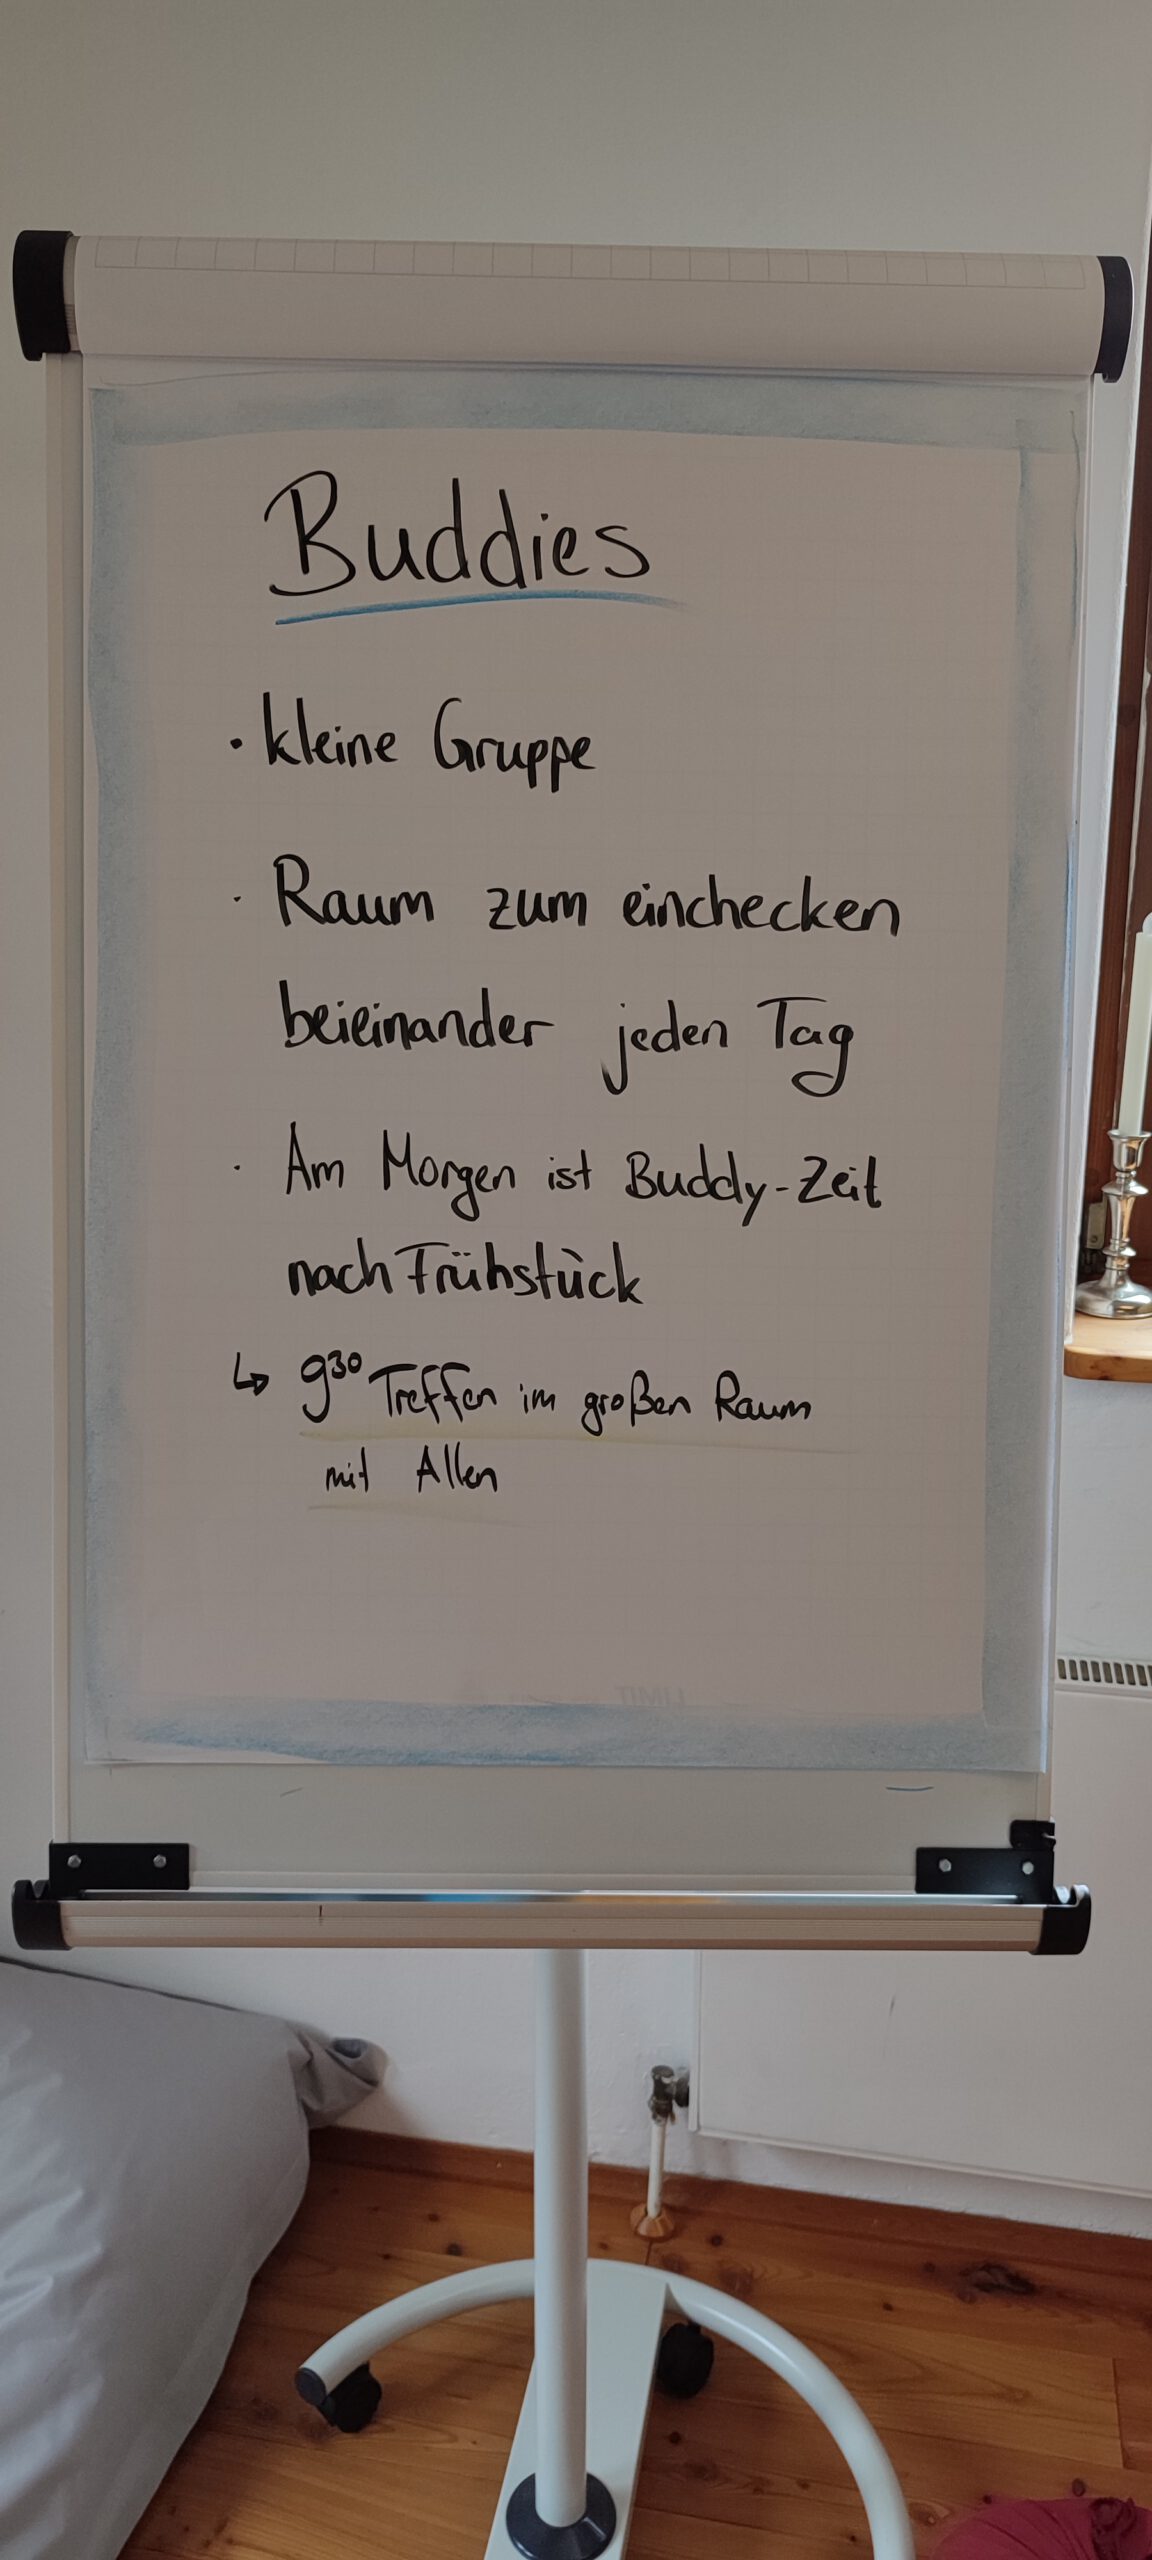 Buddies
• kleine Gruppe
• Raum zum einchecken
beieinander jeden Tag
• Am Morgen ist Buddy-Zeit
nach Frühstück
↳ 9³⁰ Treffen im großen Raum
mit Allen